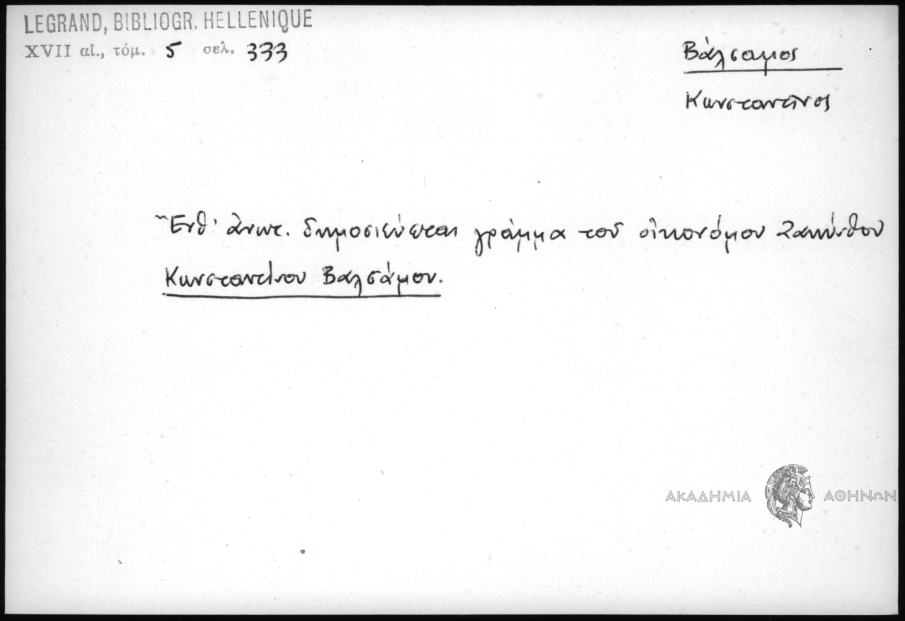 LEGRAND, BIBLIOGR. HELLENIQUE
XVII αἰ., τόμ. 5 σελ. 333
Βάλσαμος
Κωνσταντῖνος
Ἔνθ' ἀνωτ. δημοσιεύεται γράμμα τοῦ οἰκονόμου Ζακύνθου
Κωνσταντίνου Βαλσάμου.
ΑΚΑΔΗΜΙΑ ΑΘΗΝΩΝ